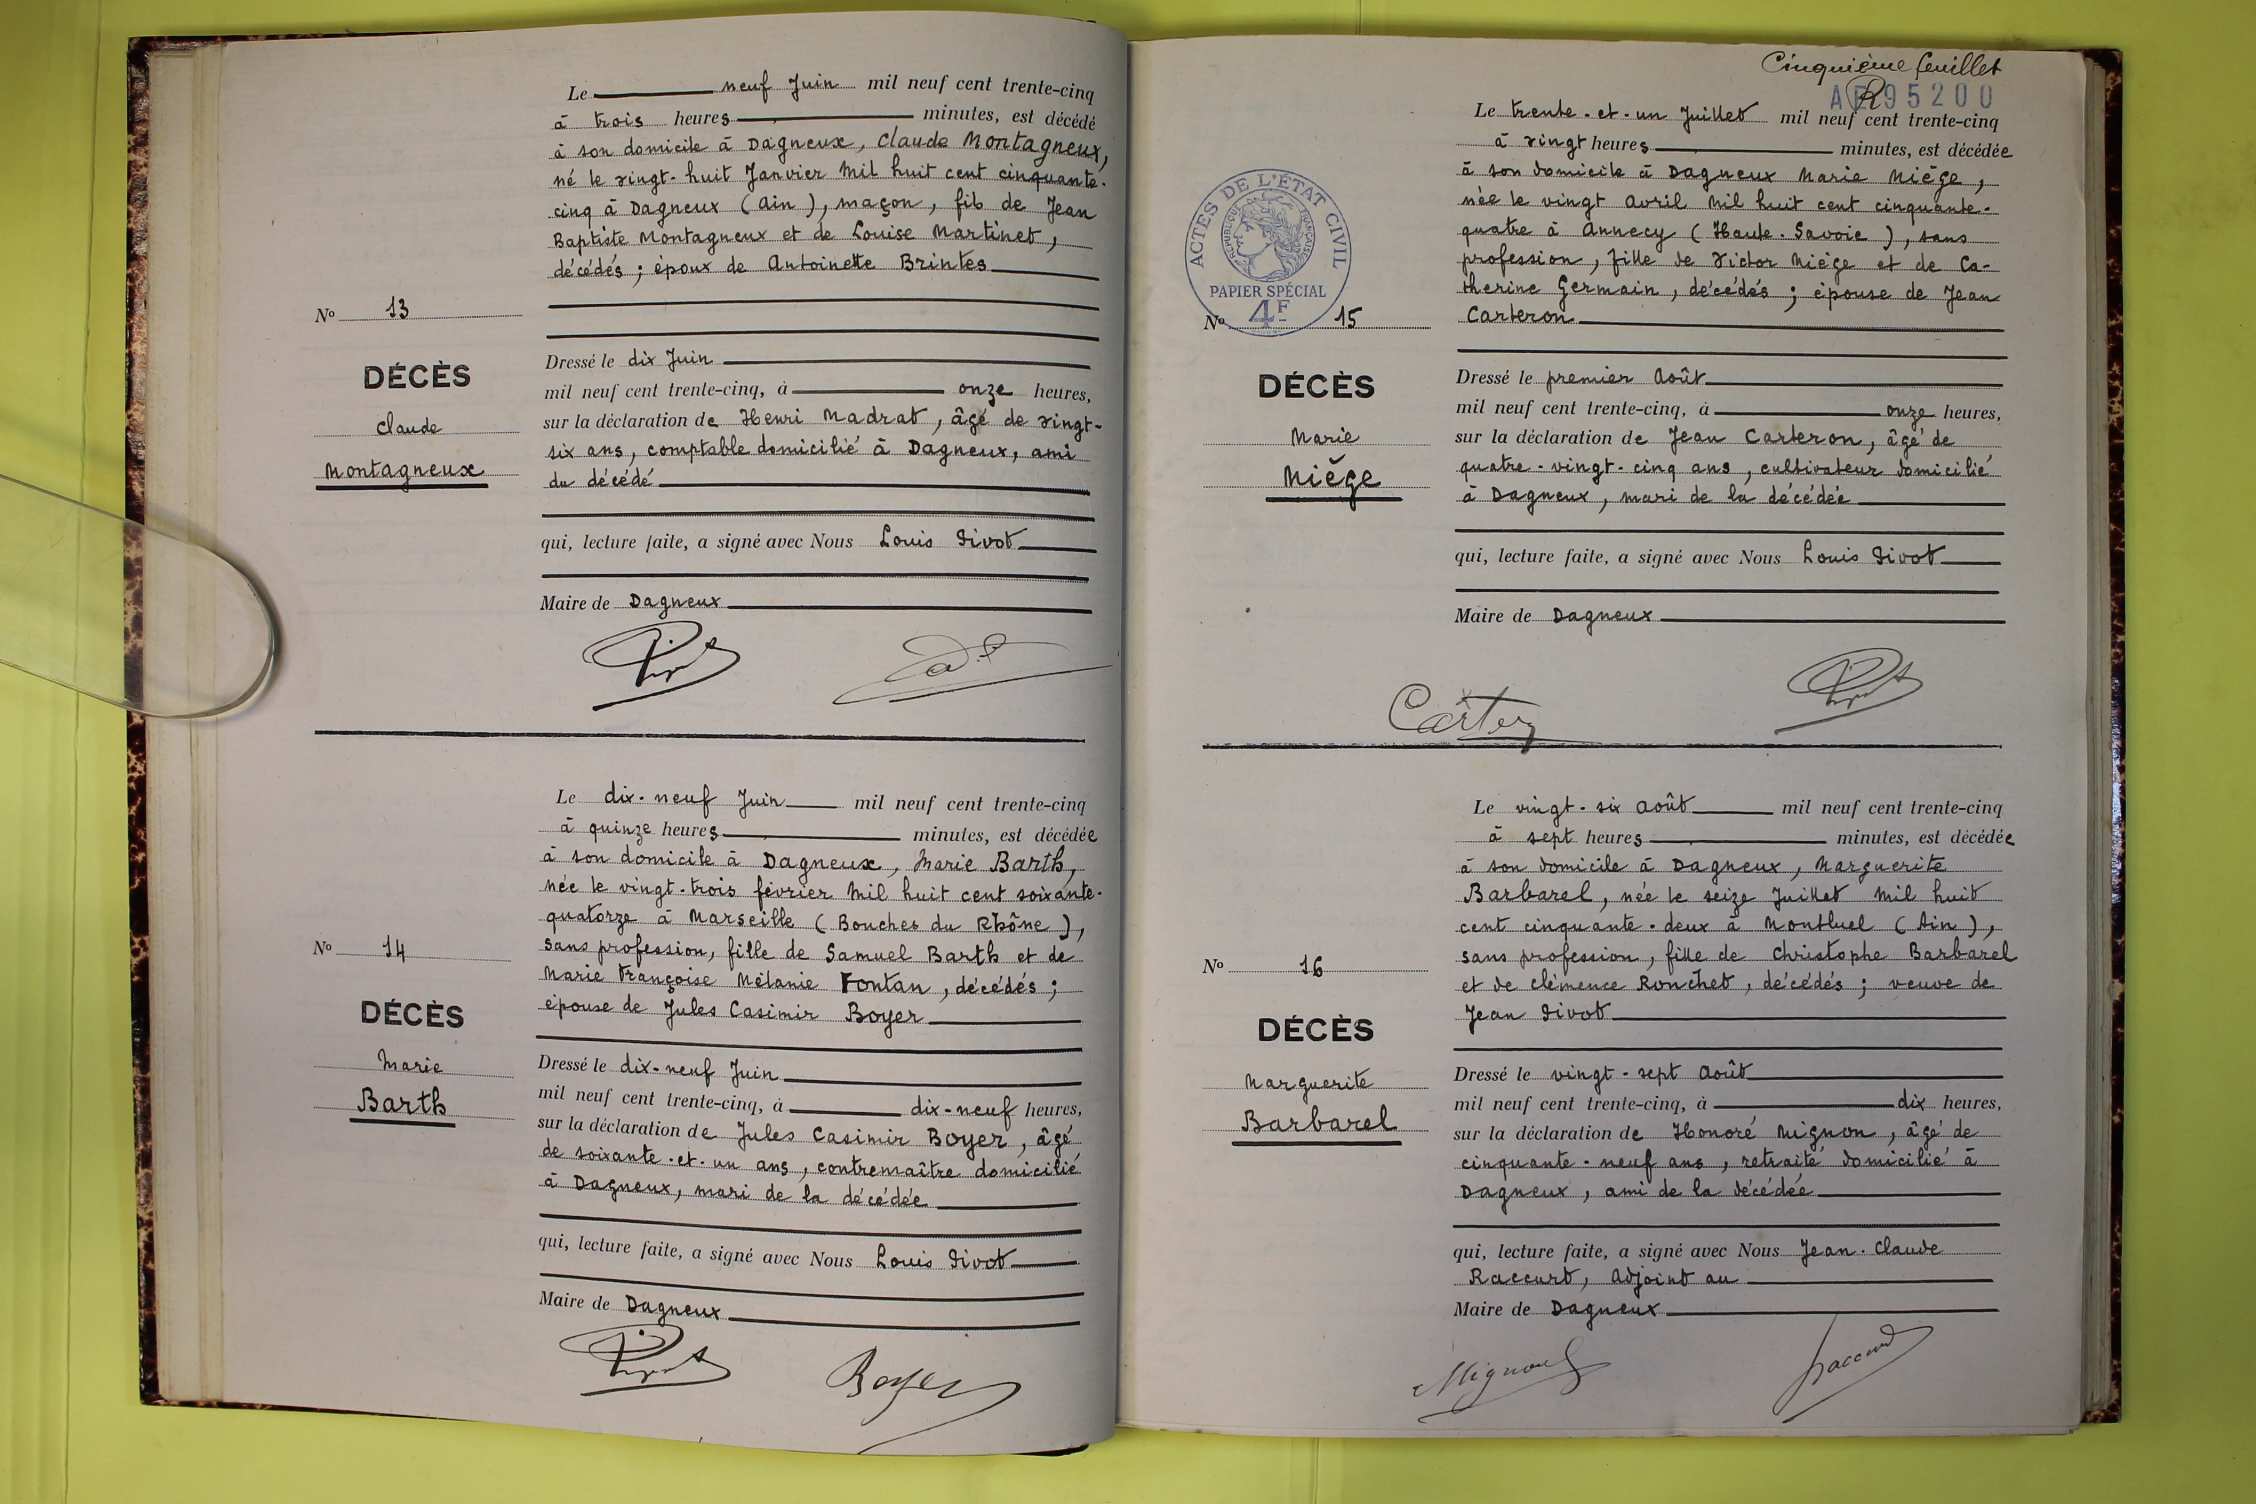 Le neuf Juin mil neuf cent trente-cinq
à trois heures minutes, est décédé
à son domicile à Dagneux, Claude Montagneux,
né le vingt-huit Janvier mil huit cent cinquante-
cinq à Dagneux (Ain), maçon, fils de Jean
Baptiste Montagneux et de Louise Martinet,
décédés ; époux de Antoinette Brintes
No 13
DÉCÈS
Claude
Montagneux
Dressé le dix Juin
mil neuf cent trente-cinq, à onze heures,
sur la déclaration de Henri Madrat, âgé de vingt-
six ans, comptable domicilié à Dagneux, ami
du décédé
qui, lecture faite, a signé avec Nous Louis Divot
Maire de Dagneux
Le dix-neuf Juin mil neuf cent trente-cinq
à quinze heures minutes, est décédée
à son domicile à Dagneux, Marie Barth,
née le vingt-trois février mil huit cent soixante-
quatorze à Marseille (Bouches du Rhône),
sans profession, fille de Samuel Barth et de
Marie Françoise Mélanie Fontan, décédés ;
épouse de Jules Casimir Boyer
No 14
DÉCÈS
Marie
Barth
Dressé le dix-neuf Juin
mil neuf cent trente-cinq, à dix-neuf heures,
sur la déclaration de Jules Casimir Boyer, âgé
de soixante-et-un ans, contremaître domicilié
à Dagneux, mari de la décédée
qui, lecture faite, a signé avec Nous Louis Divot
Maire de Dagneux
Boyer
Cinquième feuillet
95200
Le trente-et-un Juillet mil neuf cent trente-cinq
à vingt heures minutes, est décédée
à son domicile à Dagneux Marie Miège,
née le vingt Avril mil huit cent cinquante-
quatre à Annecy (Haute-Savoie), sans
profession, fille de Victor Miège et de Ca-
therine Germain, décédés ; épouse de Jean
Carteron
ACTES DE L'ÉTAT CIVIL
RÉPUBLIQUE FRANÇAISE
PAPIER SPÉCIAL
4F
No 15
DÉCÈS
Marie
Miège
Dressé le premier Août
mil neuf cent trente-cinq, à onze heures,
sur la déclaration de Jean Carteron, âgé de
quatre-vingt-cinq ans, cultivateur domicilié
à Dagneux, mari de la décédée
qui, lecture faite, a signé avec Nous Louis Divot
Maire de Dagneux
Le vingt-six Août mil neuf cent trente-cinq
à sept heures minutes, est décédée
à son domicile à Dagneux, Marguerite
Barbarel, née le seize Juillet mil huit
cent cinquante-deux à Montluel (Ain),
sans profession, fille de Christophe Barbarel
et de Clémence Ronchet, décédés ; veuve de
Jean Divot
No 16
DÉCÈS
Marguerite
Barbarel
Dressé le vingt-sept Août
mil neuf cent trente-cinq, à dix heures,
sur la déclaration de Honoré Mignon, âgé de
cinquante-neuf ans, retraité domicilié à
Dagneux, ami de la décédée
qui, lecture faite, a signé avec Nous Jean-Claude
Raccurt, Adjoint au
Maire de Dagneux
Mignon
Raccurt